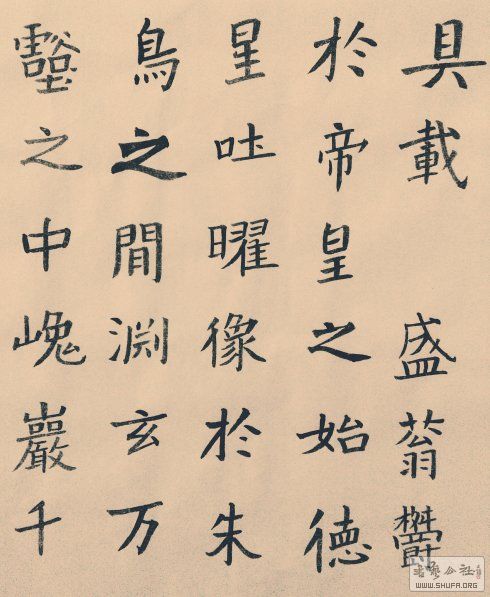 具載　盛蓊欝
於帝皇之始德
星吐曜像於朱
鳥之間淵玄万
壑之中巖千
书艺公社
WWW.SHUFA.ORG